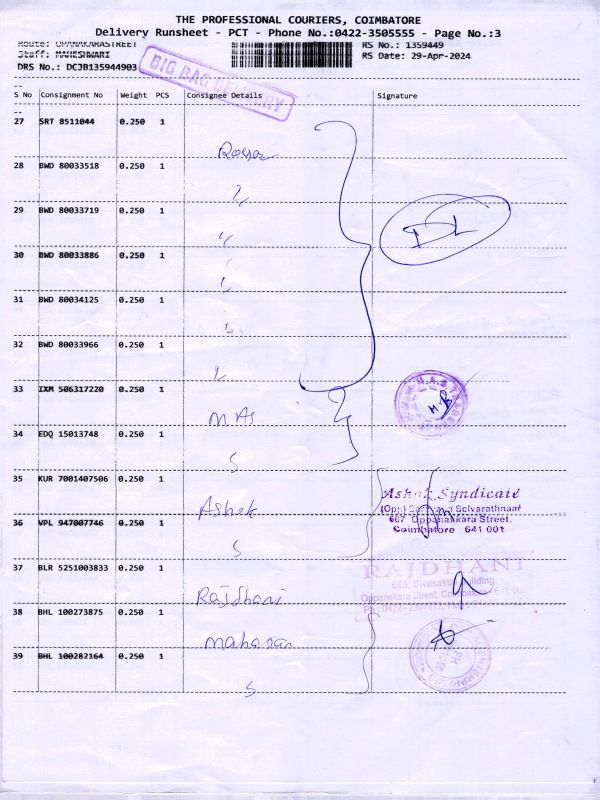 THE PROFESSIONAL COURIERS, COIMBATORE
Delivery Runsheet - PCT - Phone No.:0422-3505555 - Page No.:3
Route: OPANAKARASTREET
RS No.: 1359449
Staff: MAHESHWARI
RS Date: 29-Apr-2024
DRS No.: DCJB135944903
BIG BAG DELIVERY
S No Consignment No Weight PCS Consignee Details Signature
27 SRT 8511044 0.250 1
28 BWD 80033518 0.250 1
29 BWD 80033719 0.250 1
30 BWD 80033886 0.250 1
31 BWD 80034125 0.250 1
32 BWD 80033966 0.250 1
33 IXM 506317220 0.250 1
M As
34 EDQ 15013748 0.250 1
35 KUR 7001407506 0.250 1
Ashok
Ashok Syndicate
Selvarathnam
667 Oppanakkara Street.
Coimbatore 641 001
36 VPL 947007746 0.250 1
37 BLR 5251003833 0.250 1
Rajdhani
RAJDHANI
Building,
Oppanakara Street,
38 BHL 100273875 0.250 1
39 BHL 100282164 0.250 1